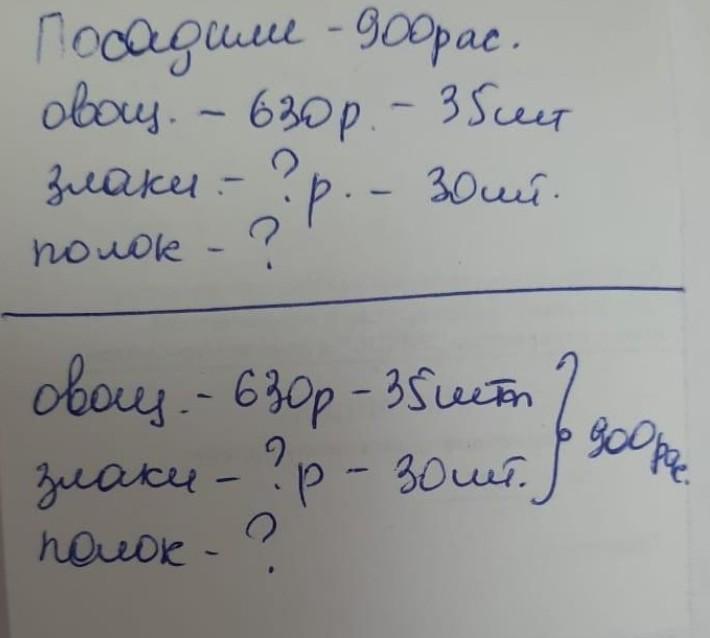 Посадили - 900рас.
овощ. - 630р. - 35шт
злаки - ?р. - 30шт.
полок - ?
овощ. - 630р - 35шт
злаки - ?р - 30шт.
900рас.
полок - ?